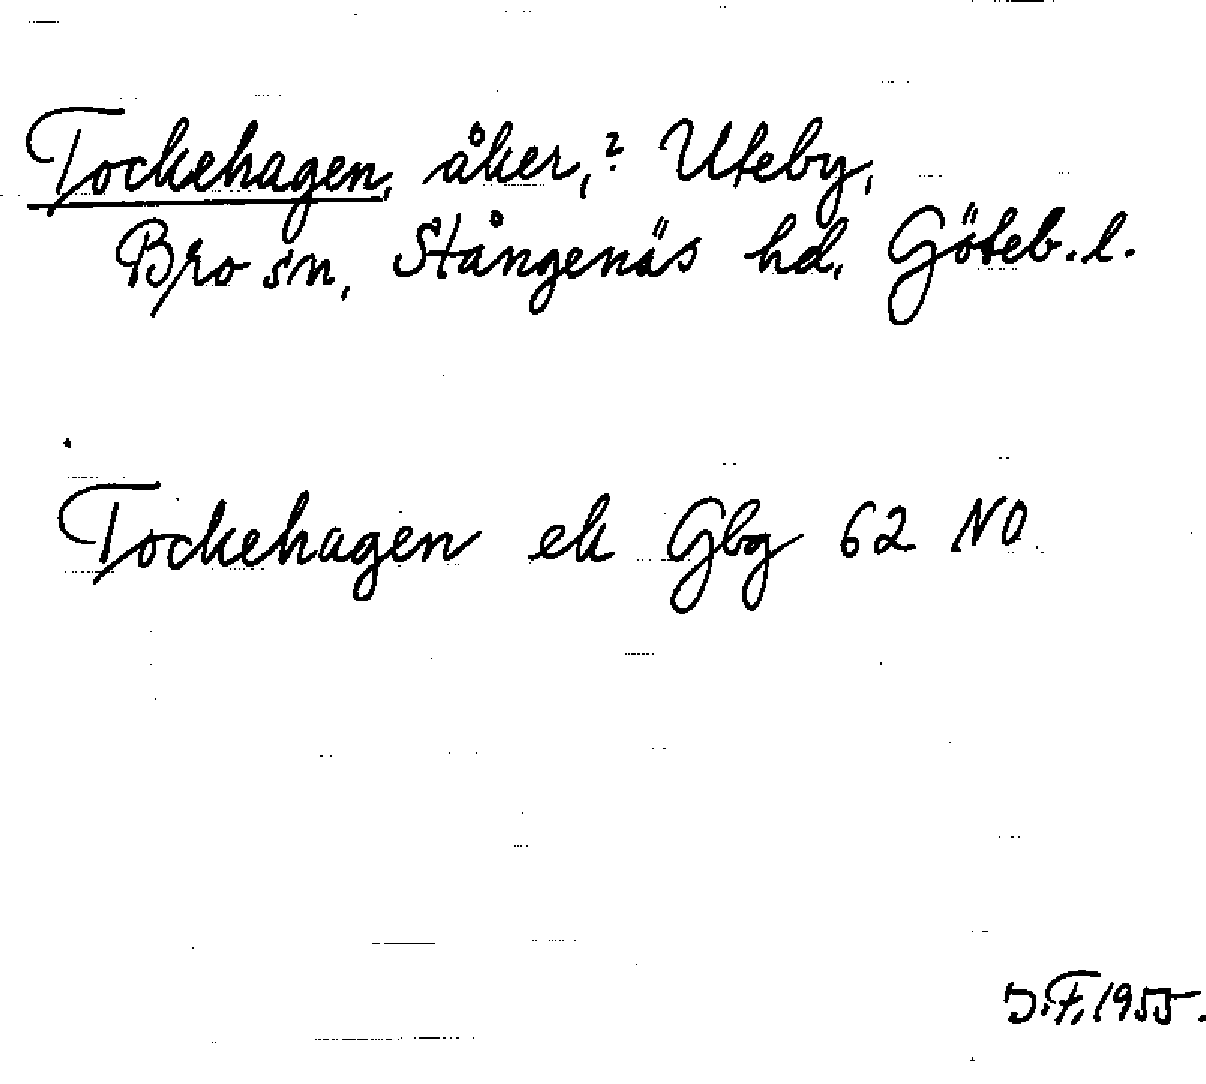 Tockehagen, åker,? Uteby,
Bro sn, Stångenäs hd, Göteb. l.
Tockehagen ek Gbg 62 NO
J.F. 1955.